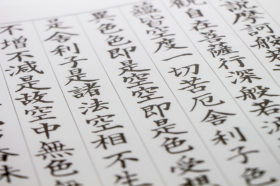 在菩薩行深般若
皆空度一切苦厄舎利子
色色即是空空即是色受
是舎利子是諸法空相不生
不増不減是故空中無色